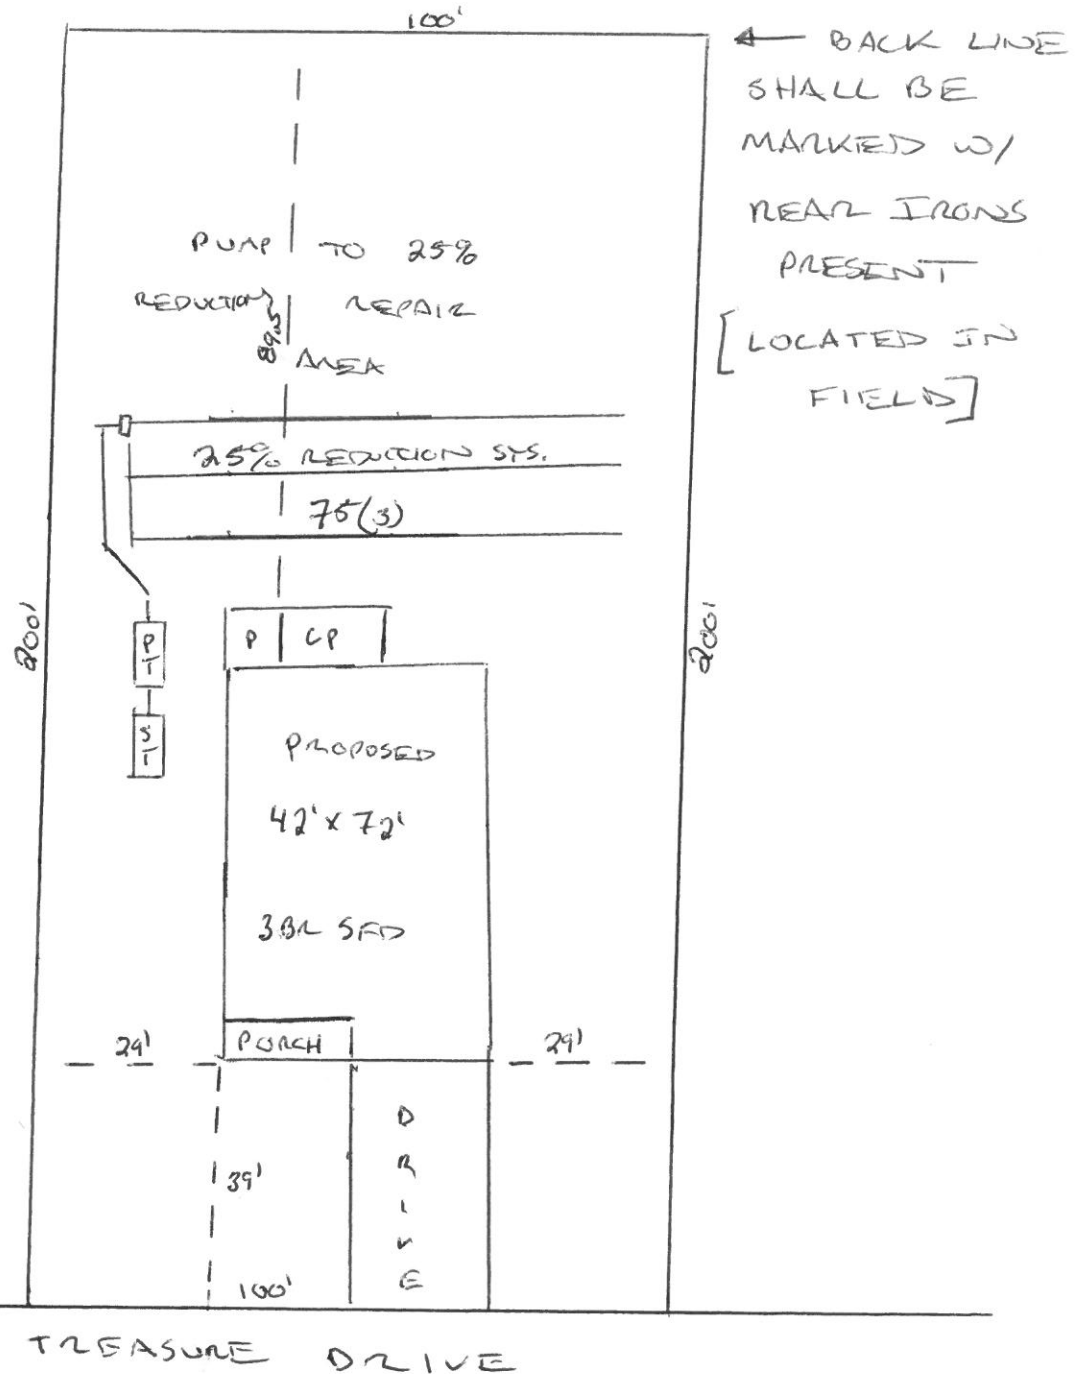 100'
← BACK LINE
SHALL BE
MARKED W/
REAR IRONS
PRESENT
[LOCATED IN
FIELD]
PUMP TO 25%
REDUCTION REPAIR
89.5
AREA
25% REDUCTION SYS.
75(3)
200'
200'
P CP
PT
ST
PROPOSED
42' x 72'
3BR SFD
29' PORCH 29'
DRIVE
39'
100'
TREASURE DRIVE